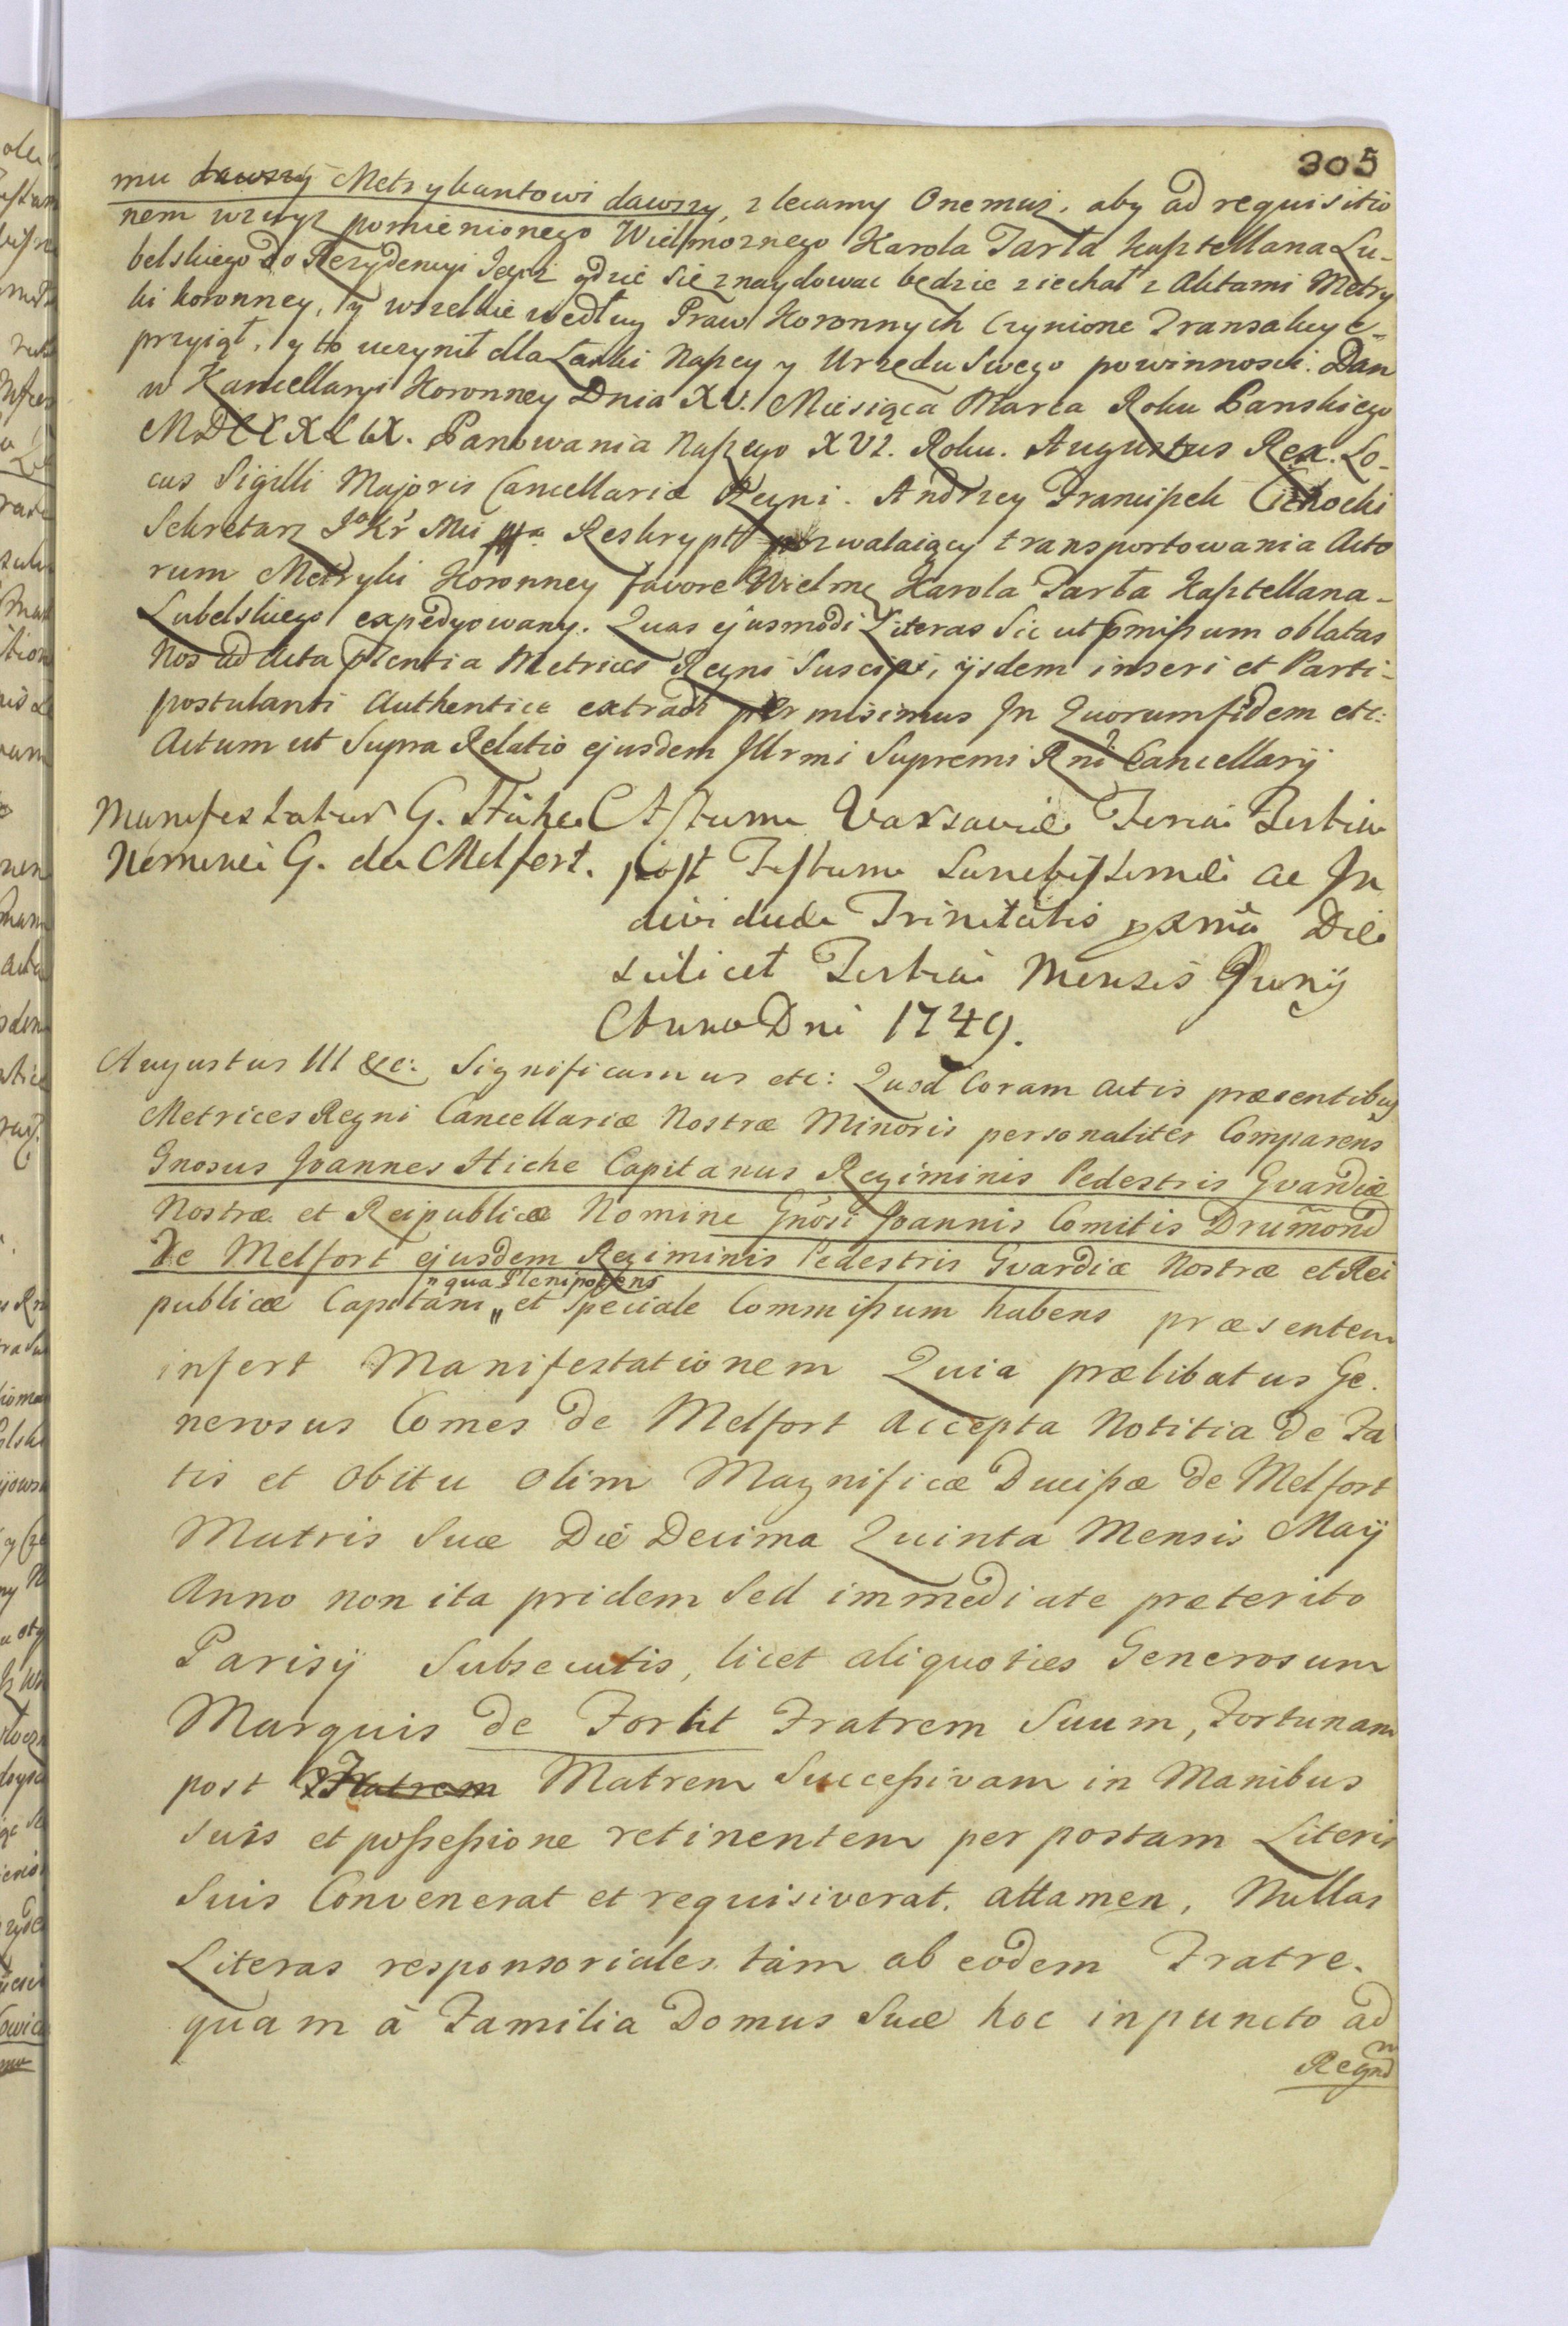 305
mu dawszy Metrykantowi dawszy, zlecamy Onemuż, aby ad requisitio
nem wzwyż pomienionego Wielmoznego Karola Tarła Kasztellana Lu-
belskiego do Rezydencyi Jegoż gdzie się znaydowac będzie ziechał z Aktami Metry
ki koronney, y wszelkie według Praw Koronnych Czynione Transakcye
przyiął, y to uczynił dla Łaski Naszey y Urzędu Swego powinnosci. Dan
w Kancellaryi Koronney Dnia XV. Miesiąca Marca Roku Panskiego
MDCCXLIX. Panowania Naszego XVI. Roku. Augustus Rex. Lo-
cus Sigilli Majoris Cancellariæ Regni. Andrzey Franciszek Cichocki
Sekretarz JoKr Mci Reskrypt pozwalaiący transportowania Acto
rum Metryki Koronney favore Wielmo Karola Tarła Kasztellana-
Lubelskiego expedyowany. Quas ejusmodi Literas Sic ut pmissum oblatas
Nos ad Acta pñentia Metrices Regni Suscipi, ijsdem inseri et Parti-
postulanti Authentice extradi permisimus In Quorum fidem etc:
Actum ut Supra Relatio ejusdem Illrmi Supremi Rni Cancellarij
Manifestatur G. Stüche
Nomine G. de Melfort.
Actum Varsaviæ Feria Tertia
post Festum Sanctissimæ ac In
dividuæ Trinitatis pxma Die
scilicet Tertia Mensis Junij
Anno Dni 1749.
Augustus III &c: Significamus etc: Quod Coram Actis præsentibus
Metrices Regni Cancellariæ Nostræ Minoris personaliter Comparens
Gnosus Joannes Stiche Capitanus Regiminis Pedestris Gvardiæ
Nostræ et Reipublicæ Nomine Gnosi Joannis Comitis Drumond
De Melfort ejusdem Regiminis Pedestris Gvardiæ Nostræ et Rei
" qua Plenipotens
publicæ Capitani " et Speciale Commissum habens præsentem
infert Manifestationem Quia prælibatus Ge.
nerosus Comes de Melfort Accepta Notitia de Fa
tis et Obitu olim Magnificæ Ducissæ de Melfort
Matris Suæ Die Decima Quinta Mensis Maij
Anno non ita pridem Sed immediate præterito
Parisij Subsecutis, licet aliquoties Generosum
Marquis de Fortit Fratrem Suum, Fortunam
post Fratrem Matrem Successivam in Manibus
Suis et possessione retinentem per postam Literis
Suis Convenerat et requisiverat. attamen, Nullas
Literas responsoriales tàm ab eodem Fratre.
quam à Familia Domus Suæ hoc in puncto ad
Regnm